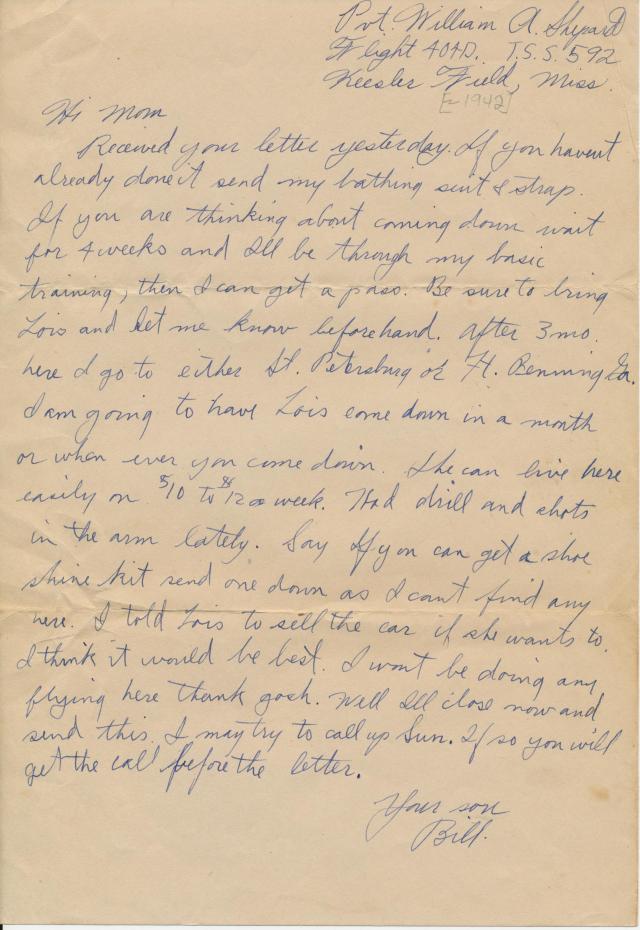 Pvt. William A. Shepard
Flight 404D. T.S.S. 592
Keesler Field, Miss.
[~1942]
Hi Mom
Received your letter yesterday. If you havent
already done it send my bathing suit & strap.
If you are thinking about coming down wait
for 4 weeks and Ill be through my basic
training, then I can get a pass. Be sure to bring
Lois and let me know beforehand. After 3 mo.
here I go to either St. Petersburg or Ft. Benning Ga.
I am going to have Lois come down in a month
or when ever you come down. She can live here
easily on $10 to $12 a week. Had drill and shots
in the arm lately. Say if you can get a shoe
shine kit send one down as I cant find any
here. I told Lois to sell the car if she wants to.
I think it would be best. I wont be doing any
flying here thank gosh. Well Ill close now and
send this. I may try to call up Sun. If so you will
get the call before the letter.
Your son
Bill.